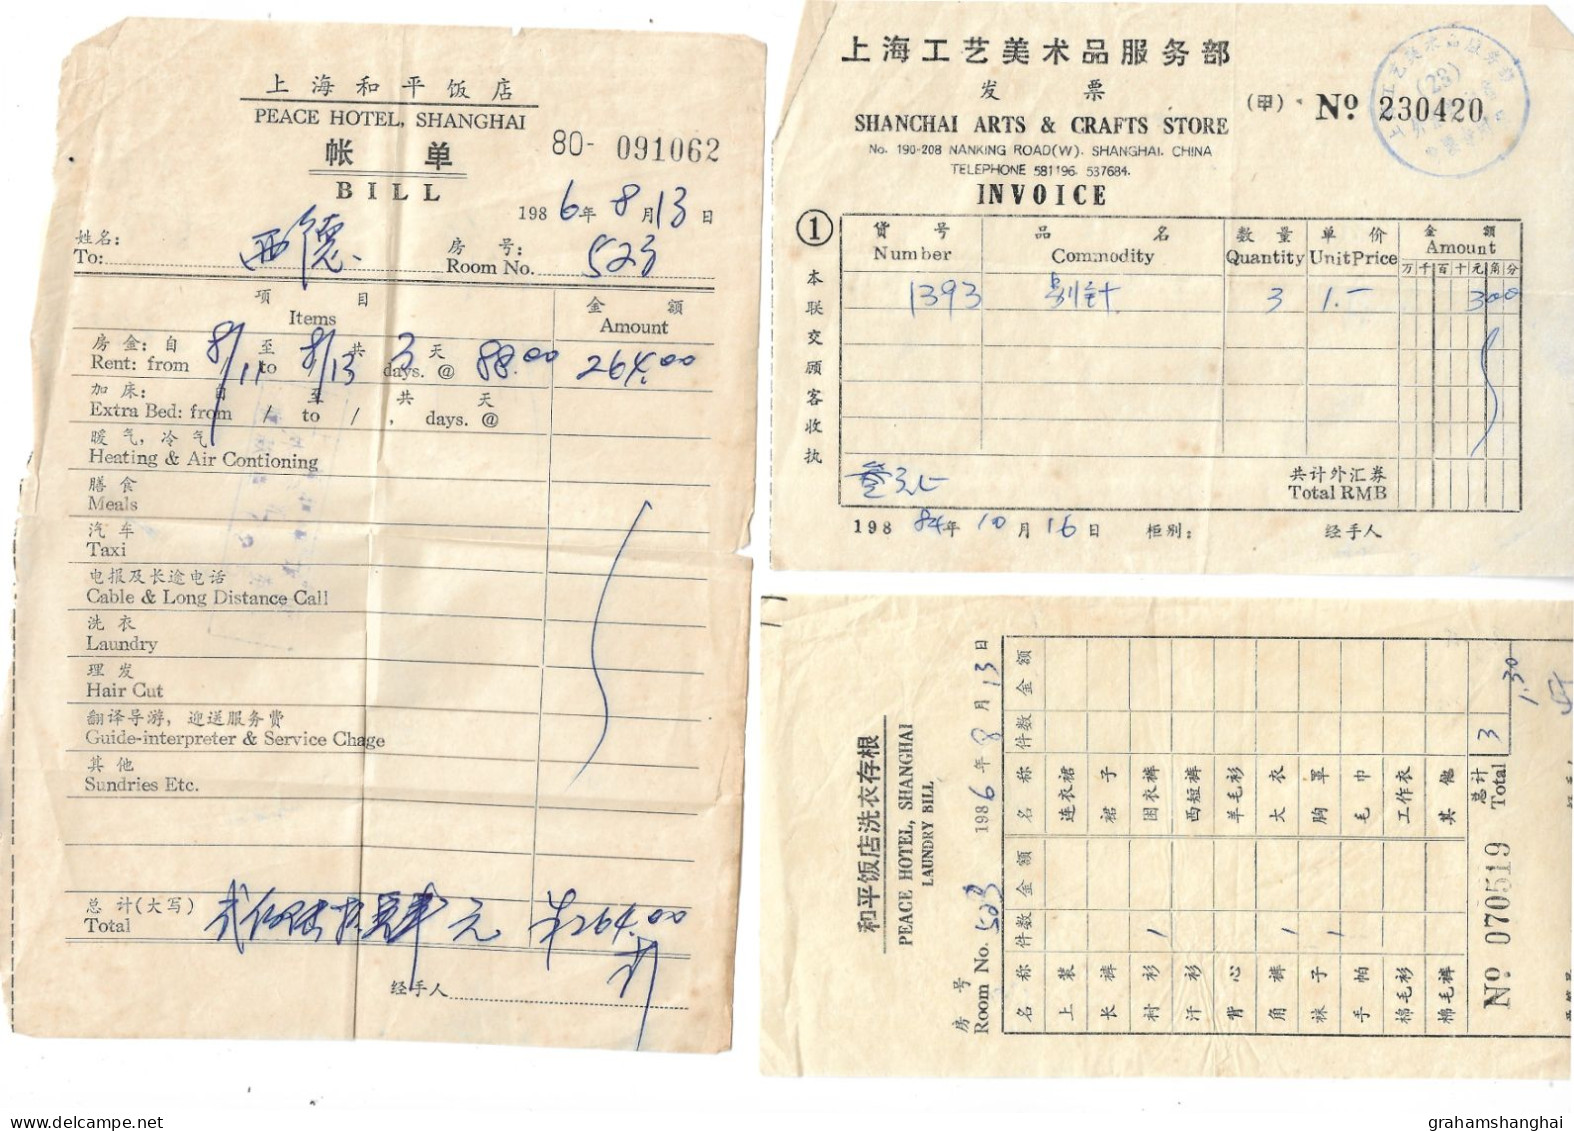 上海和平饭店
PEACE HOTEL, SHANGHAI
帐单
BILL
80- 091062
1986年8月13日
姓名:
To: 西德.
房号:
Room No. 523
项目 金额
Items Amount
房金: 自 8/11 至 8/13 共 3 天
Rent: from to days. @ 88.00 264.00
加床: 自 至 共 天
Extra Bed: from / to / , days. @
暖气, 冷气
Heating & Air Contioning
膳食
Meals
汽车
Taxi
电报及长途电话
Cable & Long Distance Call
洗衣
Laundry
理发
Hair Cut
翻译导游, 迎送服务费
Guide-interpreter & Service Chage
其他
Sundries Etc.
总计(大写)
Total 元 264.00
经手人
上海工艺美术品服务部
发票
(甲) No. 230420
SHANCHAI ARTS & CRAFTS STORE
No. 190-208 NANKING ROAD(W). SHANGHAI. CHINA
TELEPHONE 581196. 537684.
INVOICE
上海工艺美术品服务部
(23)
①本联交顾客收执
货号 品名 数量 单价 金额
Number Commodity Quantity Unit Price Amount
万千百十元角分
1393 别针 3 1.- 300
共计外汇券
Total RMB
198 84年10月16日 柜别: 经手人
和平饭店洗衣存根
PEACE HOTEL, SHANGHAI
LAUNDRY BILL
房号
Room No. 523 1986年8月13日
名称 件数 金额 名称 件数 金额
上装 连衣裙
长裤 裙子
衬衫 1 困衣裤
汗衫 西短裤
背心 羊毛衫
角裤 1 大衣
袜子 1 胸罩
手帕 毛巾
棉毛衫 工作衣
棉毛裤 其他
总计
Total 3 1.30
No 070519
grahamshanghai